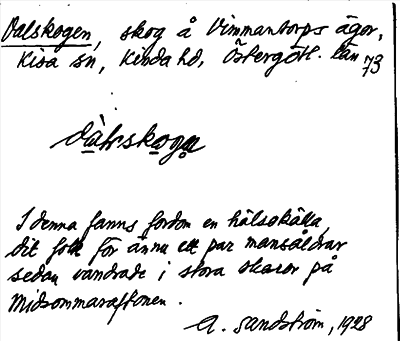 Dalskogen, skog å Vimmantorps ägor,
Kisa sn, Kinda hd, Östergötl. län 73
I denna fanns fordom en hälsokälla,
dit folk för ännu ett par mansåldrar
sedan vandrade i stora skaror på
Midsommaraftonen.
A. Sandström, 1928